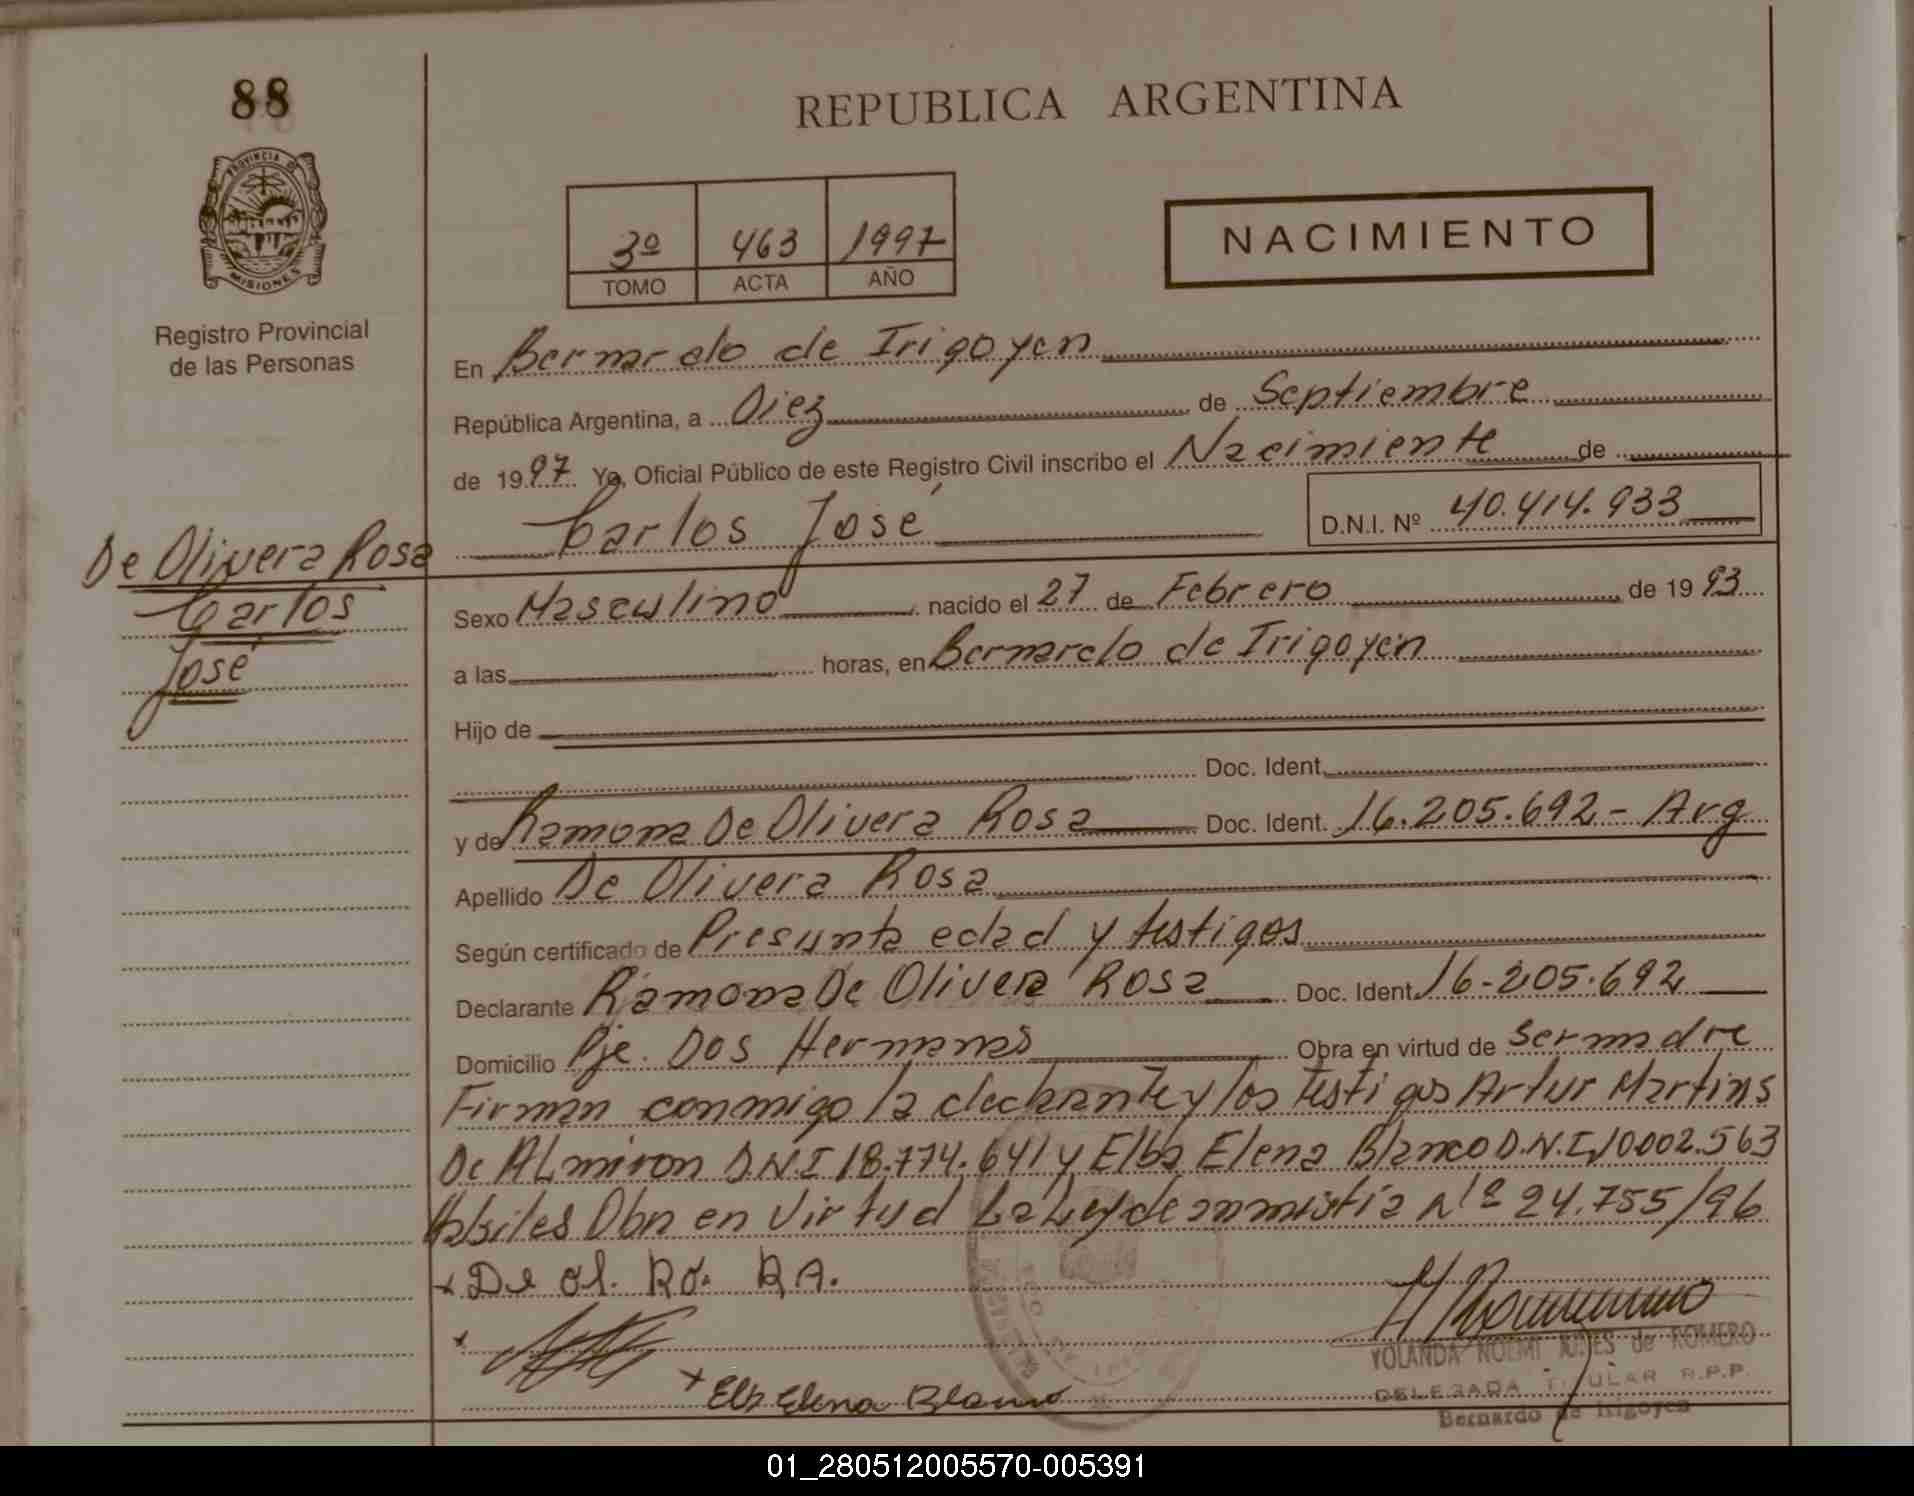 88
REPUBLICA ARGENTINA
PROVINCIA DE
MISIONES
Registro Provincial
de las Personas
3º 463 1997
TOMO ACTA AÑO
NACIMIENTO
En Bernardo de Irigoyen
República Argentina, a Diez de Septiembre
de 1997 Yo, Oficial Público de este Registro Civil inscribo el Nacimiento de
Carlos José
D.N.I. Nº 40.414.933
De Olivera Rosa
Carlos
José
Sexo Masculino nacido el 27 de Febrero de 1993
a las horas, en Bernardo de Irigoyen
Hijo de
Doc. Ident.
y de Ramona De Olivera Rosa Doc. Ident. 16.205.692 - Arg
Apellido De Olivera Rosa
Según certificado de Presunta edad y testigos
Declarante Ramona De Olivera Rosa Doc. Ident. 16-205.692
Domicilio Pje. Dos Hermanas Obra en virtud de ser madre
Firman conmigo la declarante y los testigos Artur Martins
De ALmiron D.N.I 18.774.641 y Elba Elena Blanco D.N.I. 10002.563
Habiles Obn en Virtud La Ley de amnistia Nº 24.755/96
x De ol. Ro. RA.
x
x Elb Elena Blanco
YOLANDA NOEMI de ROMERO
DELEGADA TITULAR R.P.P.
Bernardo de Irigoyen
01_280512005570-005391